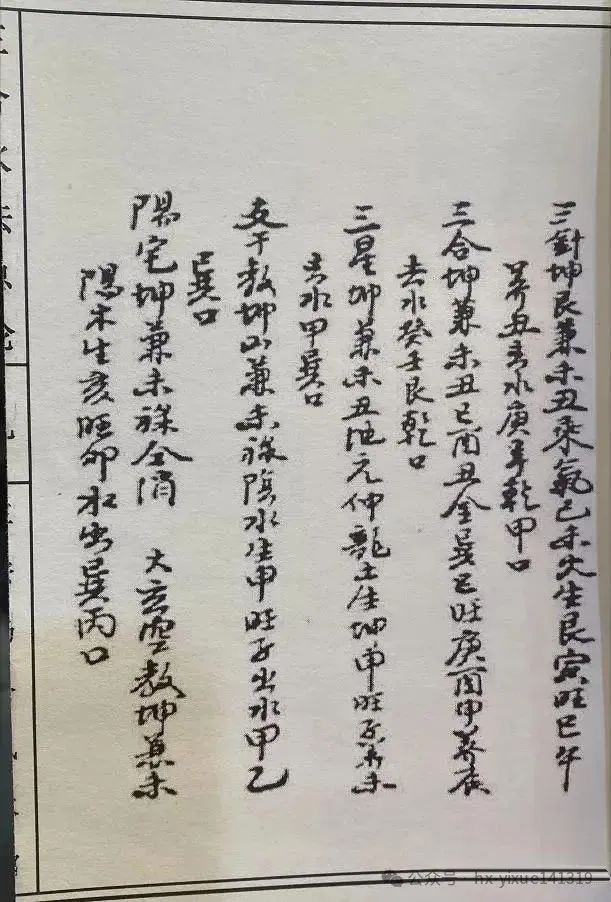 三針坤艮兼未丑乘氣己未火生艮寅旺巳午
養丑去水庚辛乾甲口
三合坤兼未丑巳酉丑金巽巳旺庚酉甲養辰
去水癸壬艮乾口
三星坤兼未丑地元仲龍土生坤申旺子養未
去水甲巽口
支干教坤山兼未祿陰水生甲旺子出水甲乙
巳巽口
陽宅坤兼未祿全消 大玄空教坤兼未
陽木生亥旺卯水出巽丙口
公众号 · hx-yixue141319